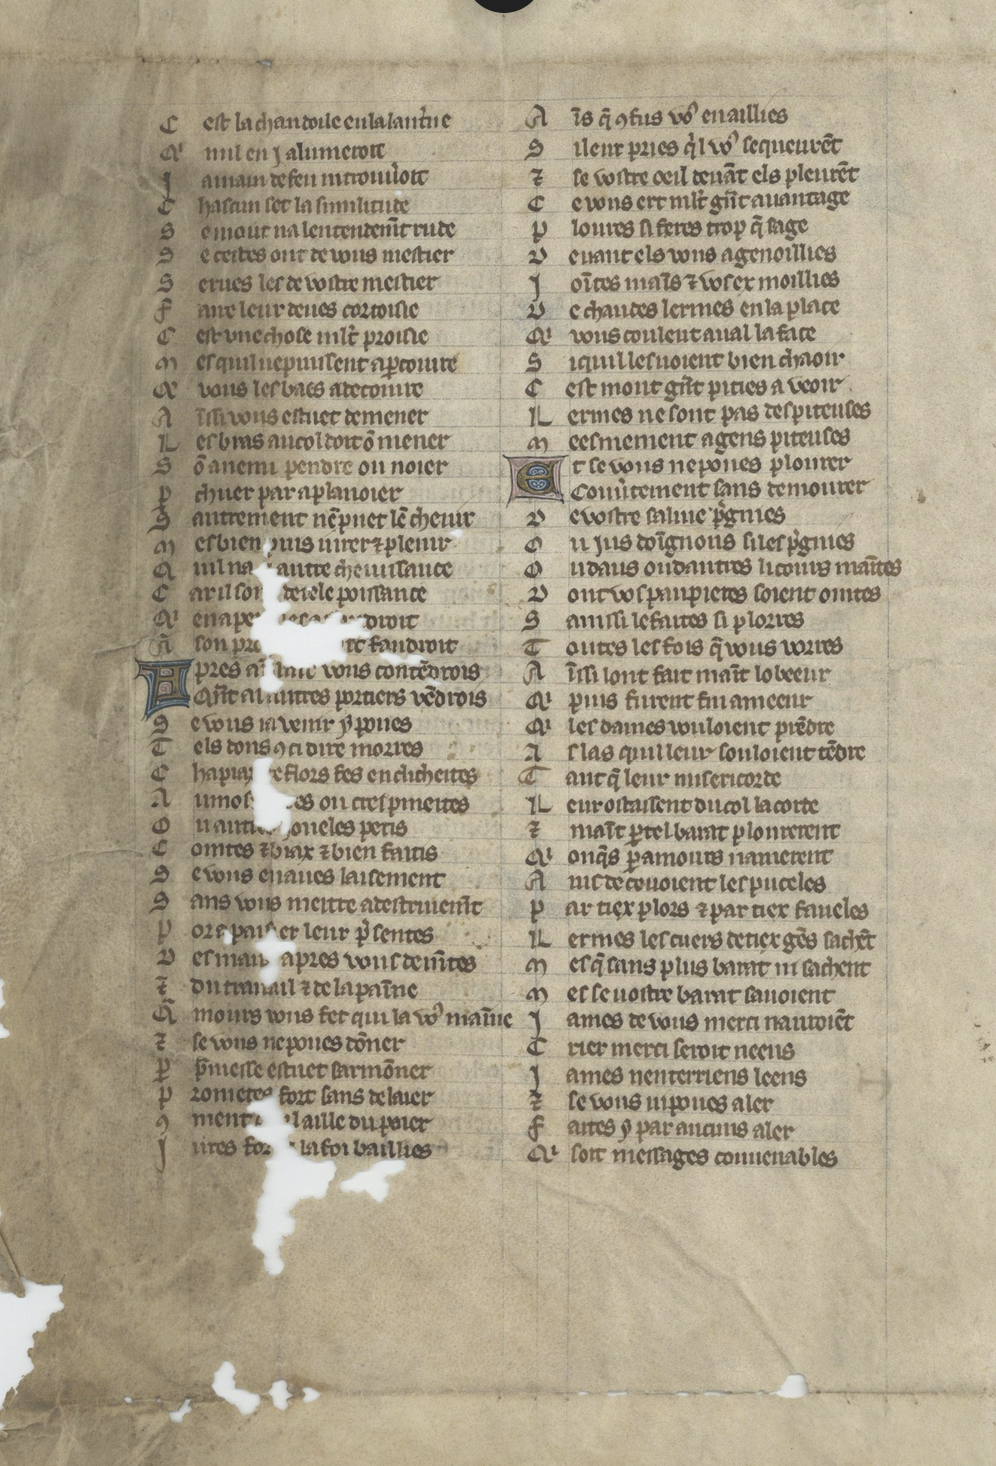 C est la chandoile en la lant̾ne
Q ui mil en j alumeroit
J a mains de feu ni trouueroit
C hascun set la similitude
S e mout na lentendem̄t rude
S e cestes ont de vous mestier
S erues les de vostre mestier
F aire leur deues cortoisie
C est vne chose ml̄t proisie
M es quil ne puissent ap̄couire
Q vous les baes a decouire
A īssi vous estuet demener
L es bras au col doit ō mener
S ō anemi pendre ou noier
P chuer par aplanoier
S autrement nē puet lē cheuir
M es bien puis iurer ⁊ plenir
Q uil na autre cheuissance
C ar il sont de tele poissance
Q en ape droit
A son pro faudroit
A pres aī faire vous contēdrois
Qn̄t as autres portiers vēdrois
S e vous i auenir y poues
T els dons ꝯ ci dire morres
C hapiau de flors fes en clicheites
A umosnieres ou crespinetes
O u autres joueles petis
C ointes ⁊ biax ⁊ bien faitis
S e vous en aues laisement
S ans vous mettre a destruiem̄t
P or apaisier leur p̄sentes
D es maus apres vous dem̄tes
⁊ du trauail ⁊ de la paine
Q amours vous fet qui la vo᷒ maīne
⁊ se vous ne poues dōner
P p̄messe estuet sarmōner
P rometes fort sans delaier
ꝯ ment quil aille du paier
J ures fort la foi baillies
A īs q̄ ꝯfus vo᷒ en aillies
S i leur pries q̄l vo᷒ sequeurēt
⁊ se vostre oeil deuāt els pleurēt
C e vous ert ml̄t grāt auantage
P loures si feres trop q̄ sage
D euant els vous agenoillies
J oītes mains ⁊ vos ex moillies
D e chaudes lermes en la place
Q vous couleut aual la face
S i quil les voient bien chaoir
C est mout grāt pities a veoir
L ermes ne sont pas despiteuses
M eesmement a gens piteuses
E t se vous ne poues plourer
Couuītement sans demourer
D e vostre saliue p̄gnies
O u jus doignons si les p̄gnies
O u daus ou dautres licours maītes
D ont vos paupieres soient ointes
S ainssi le faites si plorres
T outes les fois q̄ vous vorres
A īssi lont fait maīt lobeeur
Q puis furent fin ameeur
Q les dames vouloient prēdre
A s las quil leur souloient tēdre
T ant q̄ leur misericorde
L eur ostassent du col la corde
⁊ maīt p̄ tel barat plourerent
Q onq̄s p̄ amours namerent
A ins decouoient les puceles
P ar tiex plors ⁊ par tiex faueles
L ermes les cuers de tiex gēs sachēt
M es q̄ sans plus barat ni sachent
M es se vostre barat sauoient
J ames de vous merci nauroiēt
C rier merci seroit neens
J ames nenterriens leens
⁊ se vous ni poues aler
F aites y par aucuns aler
Q soit messages conuenables